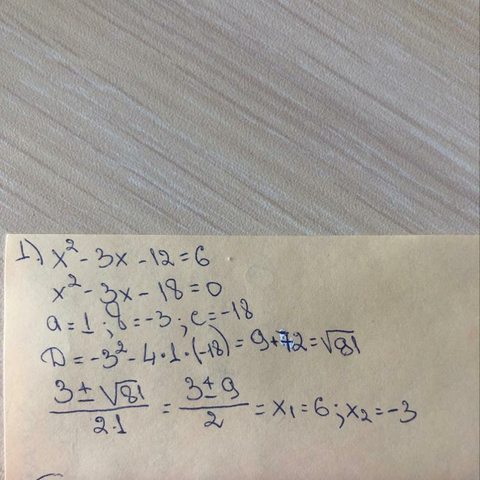 1.) x² - 3x - 12 = 6
x² - 3x - 18 = 0
a = 1 ; b = -3 ; c = -18
D = -3² - 4·1·(-18) = 9 + 72 = √81
(3 ± √81)/(2·1) = (3 ± 9)/2 = x₁ = 6 ; x₂ = -3